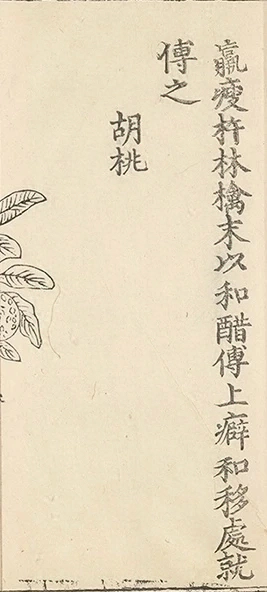 羸瘦杵林檎末以和醋傅上癖和移處就
傅之
胡桃